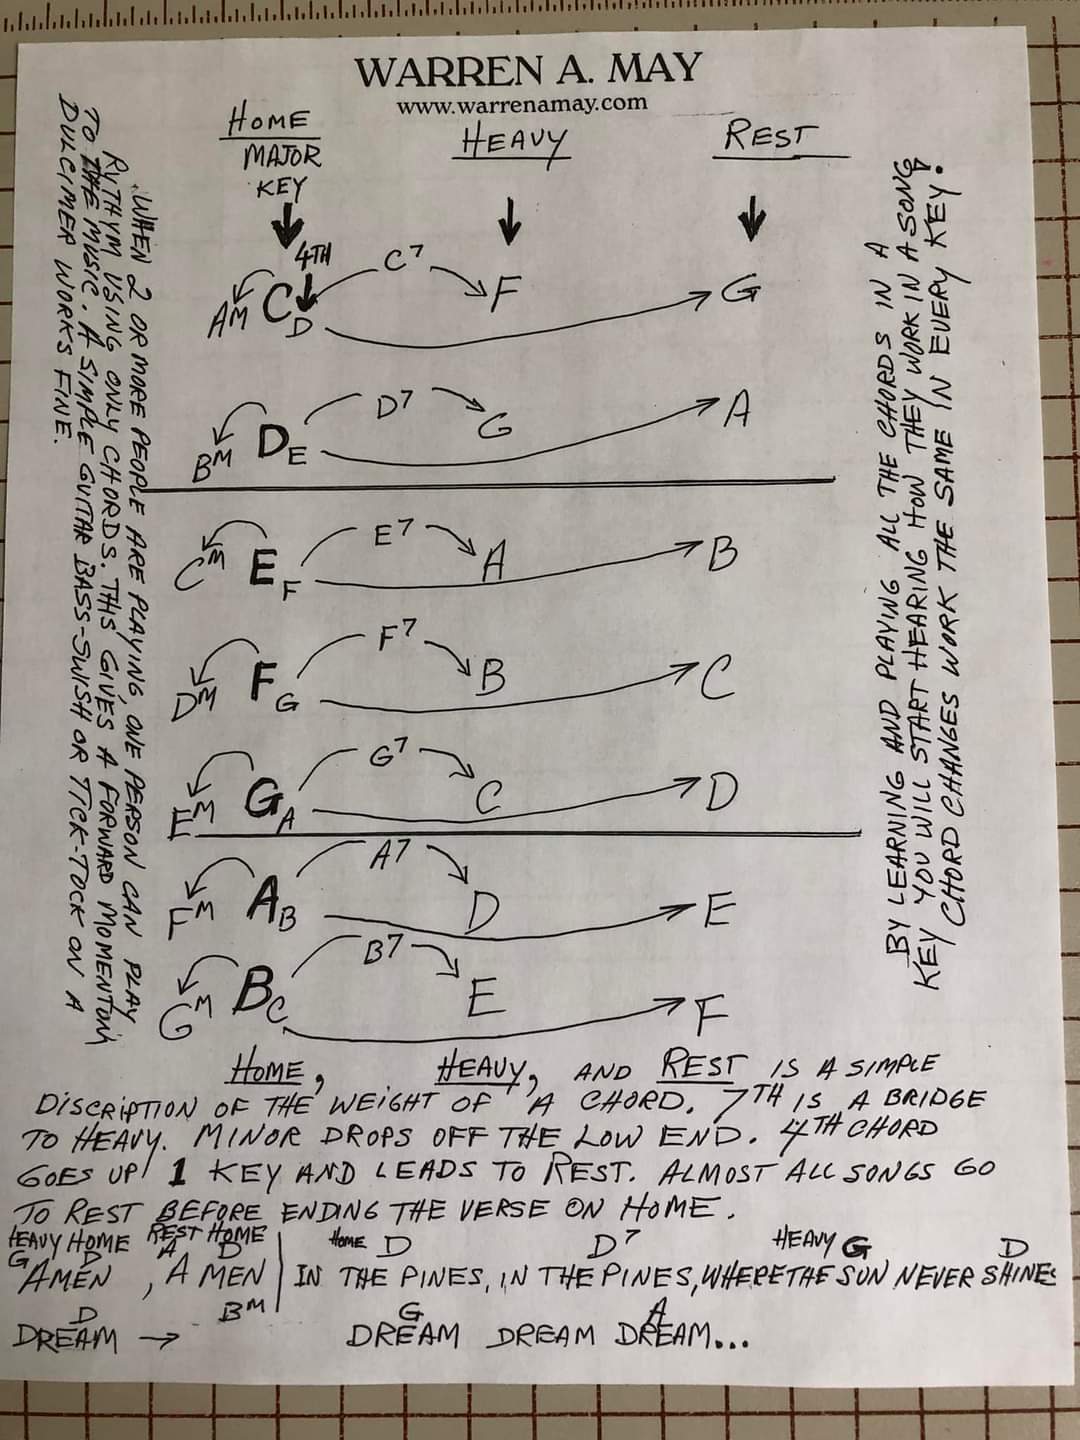 WARREN A. MAY
www.warrenamay.com
HOME HEAVY REST
MAJOR
KEY
4TH
AM C D C7 F G
BM D E D7 G A
CM E F E7 A B
DM F G F7 B C
EM G A G7 C D
FM A B A7 D E
GM B C B7 E F
HOME, HEAVY, AND REST IS A SIMPLE
DISCRIPTION OF THE WEIGHT OF A CHORD. 7TH IS A BRIDGE
TO HEAVY. MINOR DROPS OFF THE LOW END. 4TH CHORD
GOES UP 1 KEY AND LEADS TO REST. ALMOST ALL SONGS GO
TO REST BEFORE ENDING THE VERSE ON HOME.
HEAVY HOME REST HOME HOME D D7 HEAVY G D
G D A D
AMEN, AMEN | IN THE PINES, IN THE PINES, WHERE THE SUN NEVER SHINES
D BM G A
DREAM → DREAM DREAM DREAM...
.WHEN 2 OR MORE PEOPLE ARE PLAYING, ONE PERSON CAN PLAY
RYTHYM USING ONLY CHORDS. THIS GIVES A FORWARD MOMENTOM
TO THE MUSIC. A SIMPLE GUITAR BASS-SWISH OR TICK-TOCK ON A
DULCIMER WORKS FINE.
BY LEARNING AND PLAYING ALL THE CHORDS IN A
KEY YOU WILL START HEARING HOW THEY WORK IN A SONG
CHORD CHANGES WORK THE SAME IN EVERY KEY!